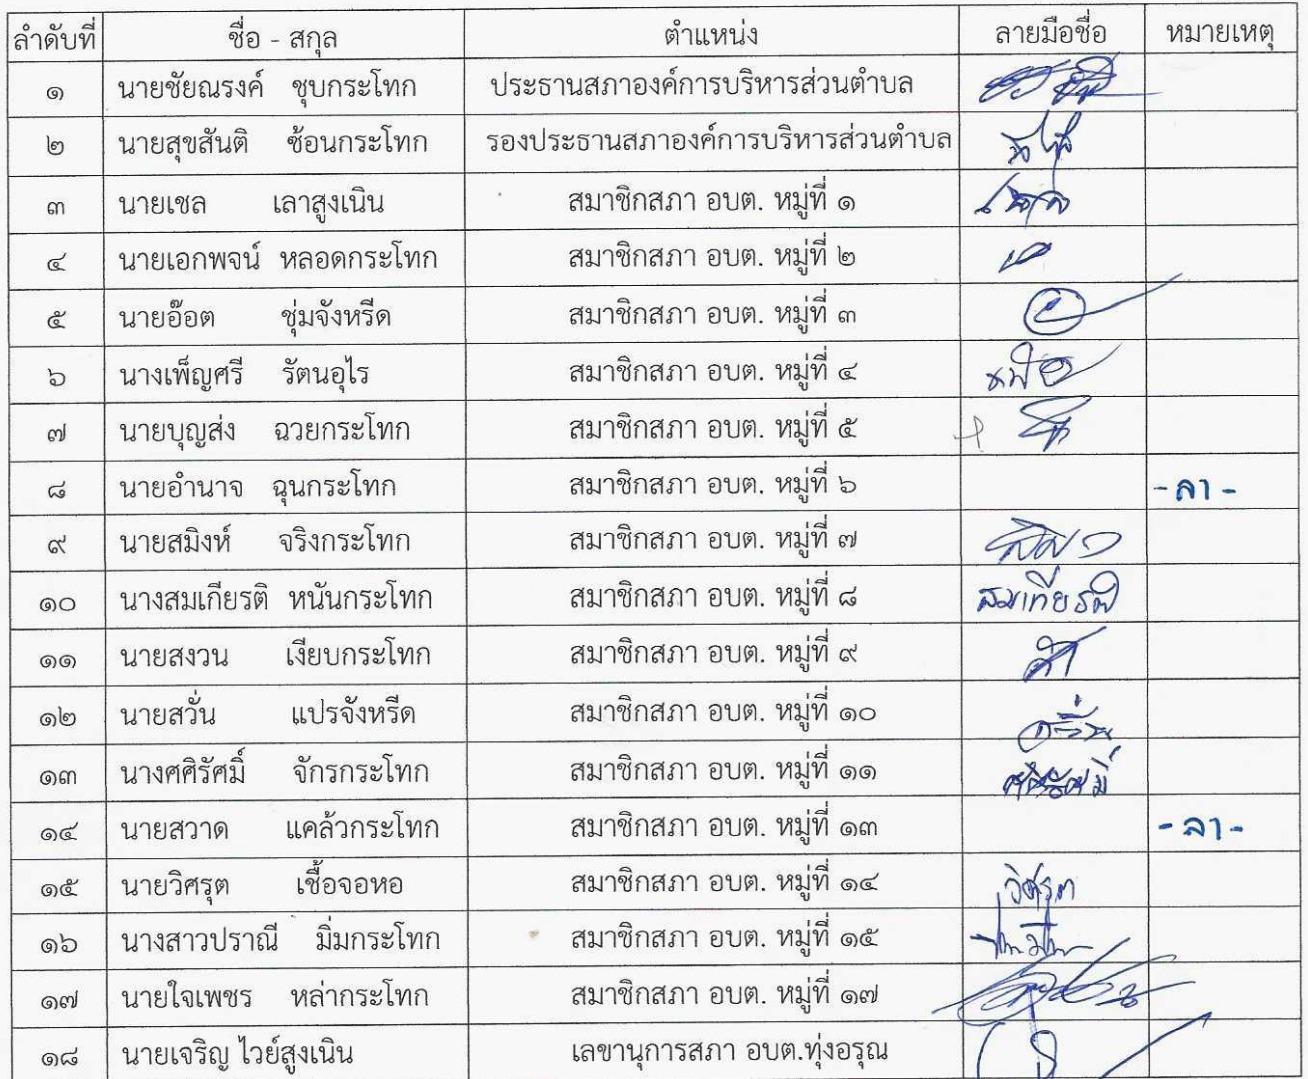 ลำดับที่ ชื่อ - สกุล ตำแหน่ง ลายมือชื่อ หมายเหตุ
๑ นายชัยณรงค์ ชุบกระโทก ประธานสภาองค์การบริหารส่วนตำบล
๒ นายสุขสันติ ซ้อนกระโทก รองประธานสภาองค์การบริหารส่วนตำบล
๓ นายเชล เลาสูงเนิน สมาชิกสภา อบต. หมู่ที่ ๑
๔ นายเอกพจน์ หลอดกระโทก สมาชิกสภา อบต. หมู่ที่ ๒
๕ นายอ๊อต ชุ่มจังหรีด สมาชิกสภา อบต. หมู่ที่ ๓
๖ นางเพ็ญศรี รัตนอุไร สมาชิกสภา อบต. หมู่ที่ ๔
๗ นายบุญส่ง ฉวยกระโทก สมาชิกสภา อบต. หมู่ที่ ๕
๘ นายอำนาจ ฉุนกระโทก สมาชิกสภา อบต. หมู่ที่ ๖ - ลา -
๙ นายสมิงห์ จริงกระโทก สมาชิกสภา อบต. หมู่ที่ ๗
๑๐ นางสมเกียรติ หนันกระโทก สมาชิกสภา อบต. หมู่ที่ ๘ สมเกียรติ
๑๑ นายสงวน เงียบกระโทก สมาชิกสภา อบต. หมู่ที่ ๙
๑๒ นายสวั่น แปรจังหรีด สมาชิกสภา อบต. หมู่ที่ ๑๐
๑๓ นางศศิรัศมิ์ จักรกระโทก สมาชิกสภา อบต. หมู่ที่ ๑๑
๑๔ นายสวาด แคล้วกระโทก สมาชิกสภา อบต. หมู่ที่ ๑๓ - ลา -
๑๕ นายวิศรุต เชื้อจอหอ สมาชิกสภา อบต. หมู่ที่ ๑๔ วิศรุต
๑๖ นางสาวปราณี มิ่มกระโทก สมาชิกสภา อบต. หมู่ที่ ๑๕
๑๗ นายใจเพชร หล่ากระโทก สมาชิกสภา อบต. หมู่ที่ ๑๗
๑๘ นายเจริญ ไวย์สูงเนิน เลขานุการสภา อบต.ทุ่งอรุณ